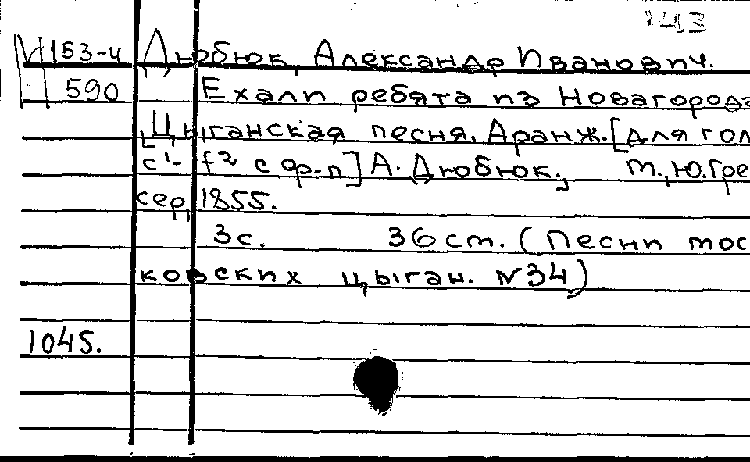 143
М 153-4 Дюбюк, Александр Иванович.
Н 590 Ехали ребята из Новагорода
Цыганская песня. Аранж. [для гол
c¹- f² с ф-п] А. Дюбюк., М., Ю. Гре
сер, 1855.
3с. 36 ст. (Песни мос
ковских цыган. №34)
1045.